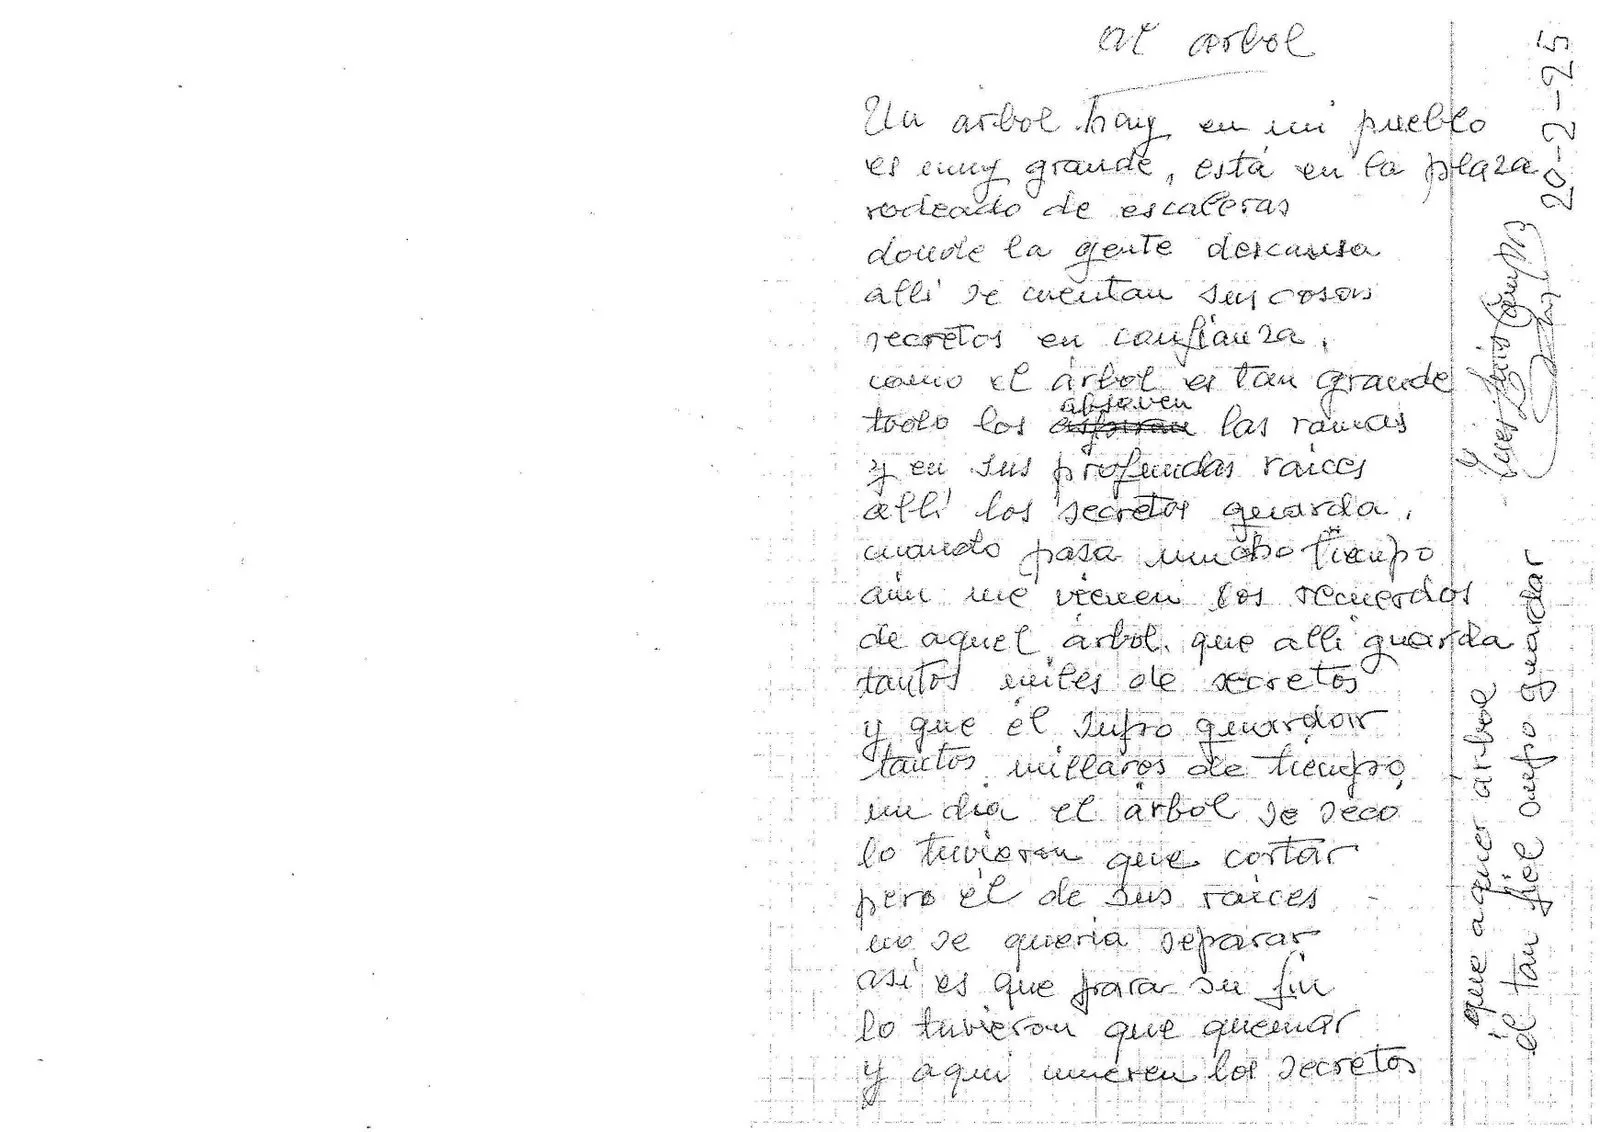 al arbol
Un arbol hay en mi pueblo
es muy grande, está en la plaza
rodeado de escaleras
donde la gente descansa
allí se cuentan sus cosas
secretos en confianza,
como el árbol es tan grande
absoven
todo los las ramas
y en sus profundas raices
allí los secretos guarda,
cuando pasa mucho tiempo
aún me vienen los recuerdos
de aquel árbol. que alli guarda
tantos miles de secretos
y que él supo guardar
tantos millares de tiempo,
un dia el árbol se secó
lo tuvieron que cortar
pero él de sus raices
no se queria separar
así es que para su fin
lo tuvieron que quemar
y aqui mueren los secretos
que aquel árbol
él tan fiel supo guardar
Luis
20-2-25